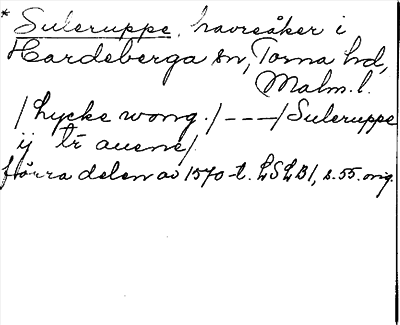 * Suleruppe, havreåker i
Hardeberga sn, Torna hd,
Malm. l.
/Lycke wong./---/Suleruppe
ij tr auene/.
förra delen av 1570-t. LSLB1, s. 55. orig.